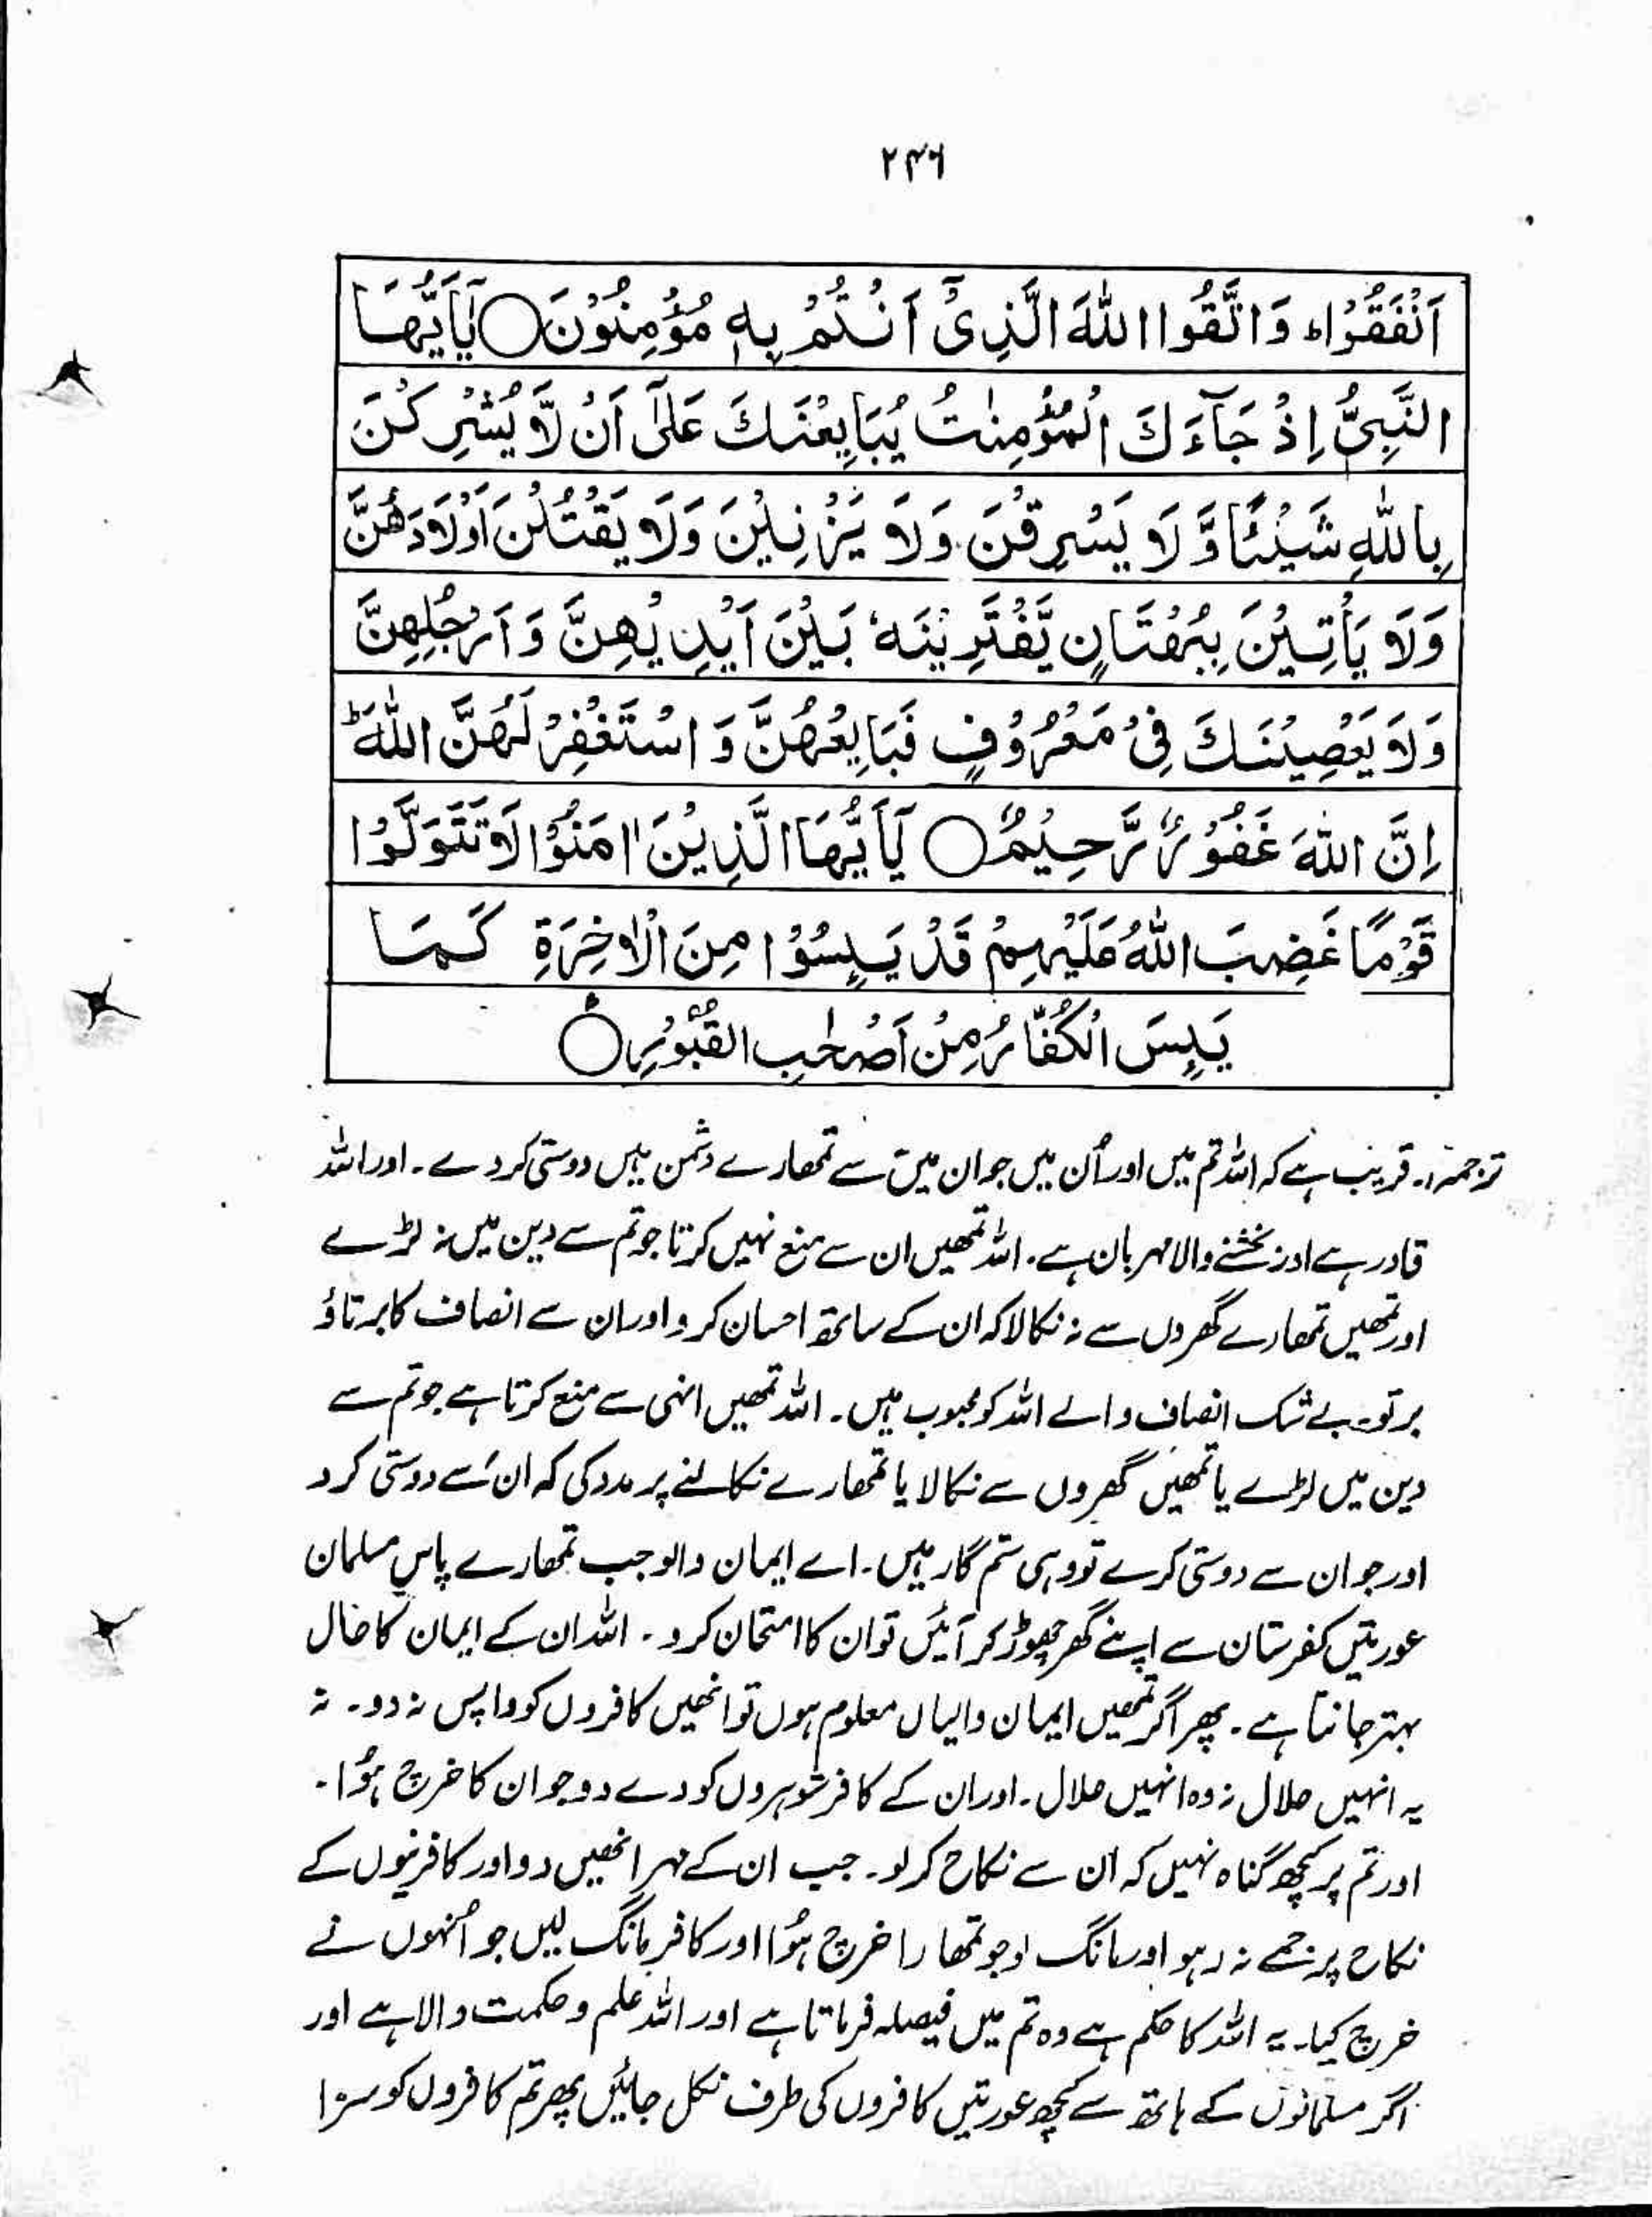 ۲۴۶
اَنْفَقُوْا ؕ وَاتَّقُوا اللّٰهَ الَّذِیْۤ اَنْتُمْ بِهٖ مُؤْمِنُوْنَ ○ یٰۤاَیُّهَا
النَّبِیُّ اِذْ جَآءَكَ الْمُؤْمِنٰتُ یُبَایِعْنَكَ عَلٰۤی اَنْ لَّا یُشْرِكْنَ
بِاللّٰهِ شَیْـًٔا وَّ لَا یَسْرِقْنَ وَلَا یَزْنِیْنَ وَلَا یَقْتُلْنَ اَوْلَادَهُنَّ
وَلَا یَاْتِیْنَ بِبُهْتَانٍ یَّفْتَرِیْنَهٗ بَیْنَ اَیْدِیْهِنَّ وَ اَرْجُلِهِنَّ
وَلَا یَعْصِیْنَكَ فِیْ مَعْرُوْفٍ فَبَایِعْهُنَّ وَ اسْتَغْفِرْ لَهُنَّ اللّٰهَ ؕ
اِنَّ اللّٰهَ غَفُوْرٌ رَّحِیْمٌ ○ یٰۤاَیُّهَا الَّذِیْنَ اٰمَنُوْا لَا تَتَوَلَّوْا
قَوْمًا غَضِبَ اللّٰهُ عَلَیْهِمْ قَدْ یَىِٕسُوْا مِنَ الْاٰخِرَةِ كَمَا
یَىِٕسَ الْكُفَّارُ مِنْ اَصْحٰبِ الْقُبُوْرِ ○
ترجمہ:۔ قریب ہے کہ اللہ تم میں اور اُن میں جو ان میں سے تمھارے دشمن ہیں دوستی کر دے۔ اور اللہ
قادر ہے اور بخشنے والا مہربان ہے۔ اللہ تمھیں ان سے منع نہیں کرتا جو تم سے دین میں نہ لڑے
اور تمھیں تمھارے گھروں سے نہ نکالا کہ ان کے ساتھ احسان کرو اور ان سے انصاف کا برتاؤ
برتو۔ بے شک انصاف والے اللہ کو محبوب ہیں۔ اللہ تمھیں انہی سے منع کرتا ہے جو تم سے
دین میں لڑے یا تمھیں گھروں سے نکالا یا تمھارے نکالنے پر مدد کی کہ ان سے دوستی کرو
اور جو ان سے دوستی کرے تو وہی ستم گار ہیں۔ اے ایمان والو جب تمھارے پاس مسلمان
عورتیں کفرستان سے اپنے گھر چھوڑ کر آئیں تو ان کا امتحان کرو۔ اللہ ان کے ایمان کا حال
بہتر جانتا ہے۔ پھر اگر تمھیں ایمان والیاں معلوم ہوں تو انھیں کافروں کو واپس نہ دو۔ نہ
یہ انہیں حلال نہ وہ انہیں حلال۔ اور ان کے کافر شوہروں کو دے دو جو ان کا خرچ ہُوا۔
اور تم پر کچھ گناہ نہیں کہ ان سے نکاح کر لو۔ جب ان کے مہر انھیں دو اور کافرنیوں کے
نکاح پر جمے نہ رہو اور مانگ لو جو تمھارا خرچ ہُوا اور کافر مانگ لیں جو اُنہوں نے
خرچ کیا۔ یہ اللہ کا حکم ہے وہ تم میں فیصلہ فرماتا ہے اور اللہ علم و حکمت والا ہے اور
اگر مسلمانوں کے ہاتھ سے کچھ عورتیں کافروں کی طرف نکل جائیں پھر تم کافروں کو سزا